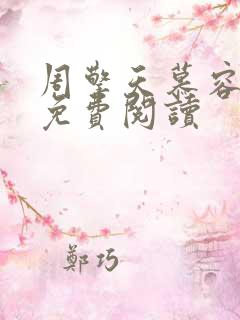 周擎天慕容
免費閱讀
鄭巧